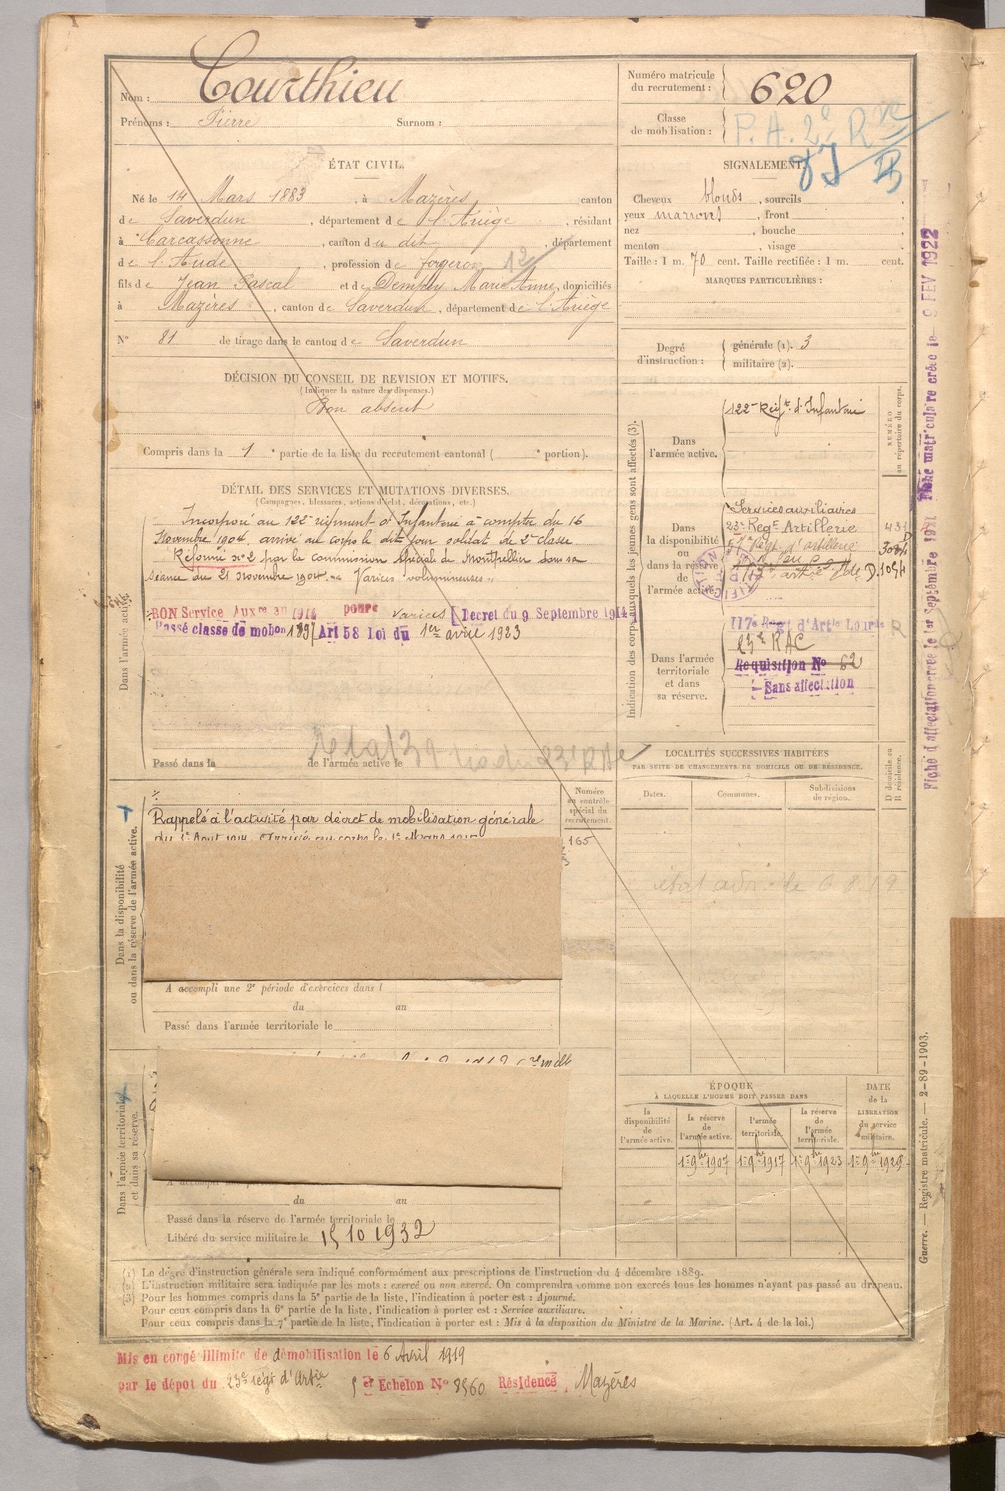 Nom : Courthieu
Prénoms : Pierre Surnom :
Numéro matricule du recrutement : 620
Classe de mobilisation :
P. A. 2e Rve
ÉTAT CIVIL.
Né le 14 Mars 1883, à Mazères canton
de Saverdun, département de l'Ariège, résidant
à Carcassonne, canton du dit, département
de l'Aude, profession de forgeron
fils de Jean Pascal et de Marie Anne, domiciliés
à Mazères, canton de Saverdun, département de l'Ariège
N° 81 de tirage dans le canton de Saverdun
SIGNALEMENT.
Cheveux blonds, sourcils
yeux marrons, front
nez , bouche
menton , visage
Taille : 1 m. 70 cent. Taille rectifiée : 1 m. cent.
MARQUES PARTICULIÈRES :
Degré d'instruction : générale (1). 3
militaire (2).
DÉCISION DU CONSEIL DE REVISION ET MOTIFS.
(Indiquer la nature des dispenses.)
Bon absent
Compris dans la 1e partie de la liste du recrutement cantonal ( e portion).
DÉTAIL DES SERVICES ET MUTATIONS DIVERSES.
(Campagnes, blessures, actions d'éclat, décorations, etc.)
Dans l'armée active.
Incorporé au 122e régiment d'Infanterie à compter du 16
Novembre 1904, arrivé au corps le dit jour soldat de 2e classe
Réformé n° 2 par la commission Spéciale de Montpellier dans sa
séance du 21 novembre 1904 "Varices volumineuses"
BON Service Auxre en 1914 pour varices Décret du 9 Septembre 1914
Passé classe de mobon 1897 Art 58 loi du 1er avril 1923
Passé dans la de l'armée active le
Indication des corps auxquels les jeunes gens sont affectés (3).
NUMÉRO au répertoire du corps.
Dans l'armée active.
122e Régt d'Infanterie
Dans la disponibilité ou dans la réserve de l'armée active.
Services auxiliaires
23e Reg. Artillerie
Dans l'armée territoriale et dans sa réserve.
117e Regt d'Artie Lourde
23e RAC
Requisition No 62
Sans affectation
Fiche d'affectation créée le 1er Septembre Fiche matriculaire créée le 9 FEV 1922
LOCALITÉS SUCCESSIVES HABITÉES
PAR SUITE DE CHANGEMENTS DE DOMICILE OU DE RÉSIDENCE.
Dates. Communes. Subdivisions de région. D domicile ou R résidence.
Dans la disponibilité ou dans la réserve de l'armée active.
Numéro au contrôle spécial du recrutement.
165
Rappelé à l'activité par décret de mobilisation générale
du 1er Août 1914. Arrivé au corps le 1er Mars 1915
A accompli une 2e période d'exercices dans l
du au
Passé dans l'armée territoriale le
Dans l'armée territoriale et dans sa réserve.
du au
Passé dans la réserve de l'armée territoriale le
Libéré du service militaire le 15 10 1932
ÉPOQUE
À LAQUELLE L'HOMME DOIT PASSER DANS
DATE de la LIBÉRATION du service militaire.
la disponibilité de l'armée active. la réserve de l'armée active. l'armée territoriale. la réserve de l'armée territoriale.
1er 9bre 1907 1er 9bre 1917 1er 9bre 1923 1er 9bre 1929
(1) Le degré d'instruction générale sera indiqué conformément aux prescriptions de l'instruction du 4 décembre 1889.
(2) L'instruction militaire sera indiquée par les mots : exercé ou non exercé. On comprendra comme non exercés tous les hommes n'ayant pas passé au drapeau.
(3) Pour les hommes compris dans la 5e partie de la liste, l'indication à porter est : Ajourné.
Pour ceux compris dans la 6e partie de la liste, l'indication à porter est : Service auxiliaire.
Pour ceux compris dans la 7e partie de la liste, l'indication à porter est : Mis à la disposition du Ministre de la Marine. (Art. 4 de la loi.)
Guerre. — Registre matricule. — 2-89-1903.
Mis en congé illimité de démobilisation le 6 Avril 1919
par le dépôt du 23e régt d'Artie Echelon No 8560 Résidence, Mazères